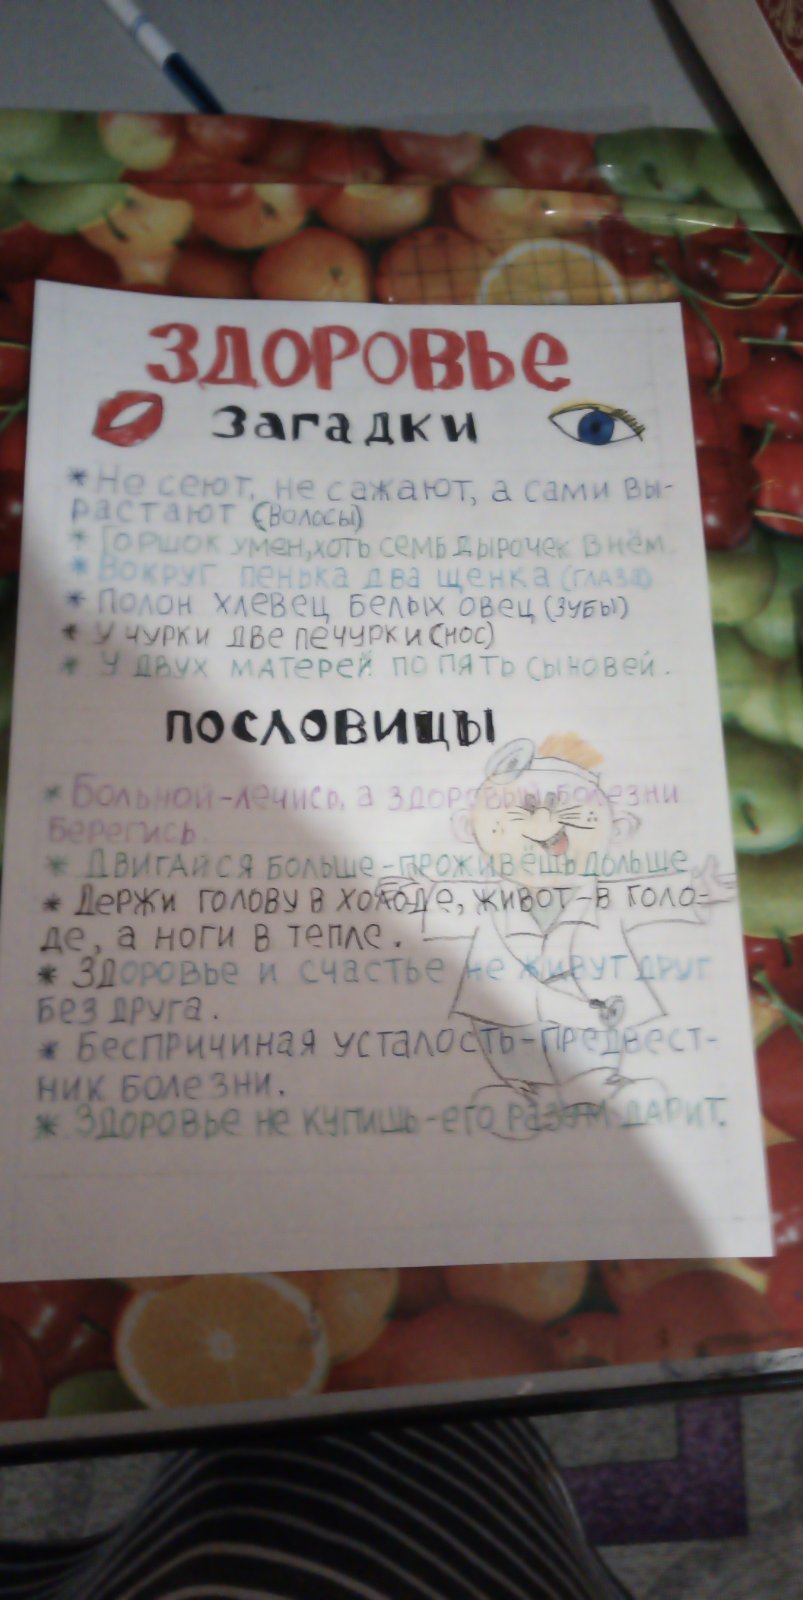 ЗДОРОВЬЕ
Загадки
* Не сеют, не сажают, а сами вы-
растают (волосы)
* Горшок умен, хоть семь дырочек в нём.
* Вокруг пенька два щенка (глаза)
* Полон хлевец белых овец (зубы)
* У чурки две печурки (нос)
* У двух матерей по пять сыновей.
ПОСЛОВИЦЫ
* Больной-лечись, а здоровый болезни
берегись.
* Двигайся больше-проживёшь дольше
* Держи голову в холоде, живот-в голо-
де, а ноги в тепле.
* Здоровье и счастье не живут друг
без друга.
* Беспричиная усталость-предвест-
ник болезни.
* Здоровье не купишь-его разум дарит.